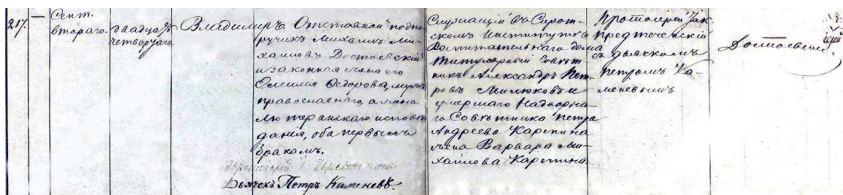 217.
Сент.
втораго.
двадцать
четвертаго
Владиміръ
Отставной подпо-
ручикъ Михаилъ Ми-
хаиловъ Достоевскій
и законная жена его
Емилія Ѳедорова, мужъ
православнаго а жена
лютеранскаго исповѣ-
данія, оба первымъ
бракомъ.
Дьячекъ Петръ Каменевъ
Служащій въ Сирот-
скомъ Институтѣ
Воспитательнаго дома
Титулярный Совѣт-
никъ Александръ Пет-
ровъ Милюковъ и
умершаго Надворна-
го Совѣтника Петра
Андреева Карепина
жена Варвара Ми-
хаилова Карепина.
Протоіерей
Предтеченскій
съ дьячкомъ
Петромъ Ка-
меневымъ